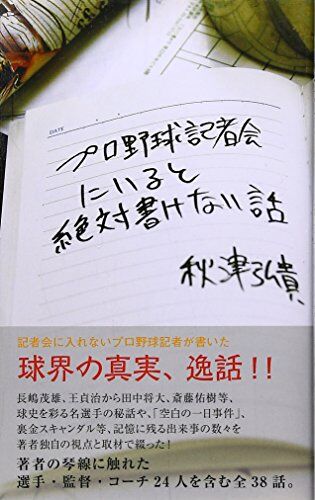 DATE
プロ野球記者会
にいると
絶対書けない話
秋津弘貴
記者会に入れないプロ野球記者が書いた
球界の真実、逸話!!
長嶋茂雄、王貞治から田中将大、斎藤佑樹等、
球史を彩る名選手の秘話や、「空白の一日事件」、
裏金スキャンダル等、記憶に残る出来事の数々を
著者独自の視点と取材で綴った!
著者の琴線に触れた
選手・監督・コーチ24人を含む全38話。